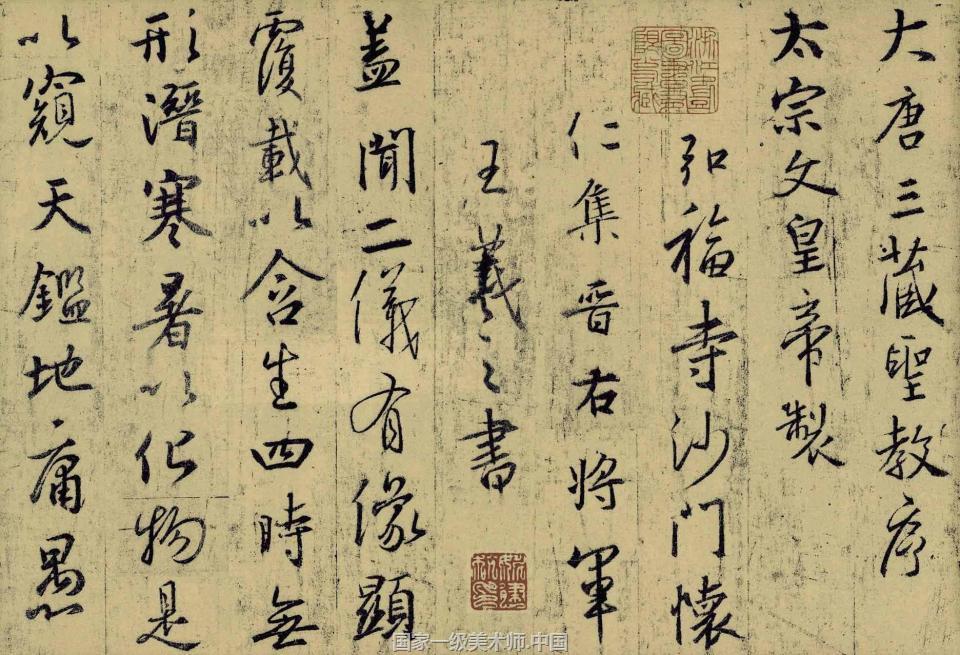 大唐三藏聖教序
太宗文皇帝製
弘福寺沙門懷
仁集晋右將軍
王羲之書
蓋聞二儀有像顯
覆載以含生四時無
形潛寒暑以化物是
以窺天鑑地庸愚
國家一级美术师.中国